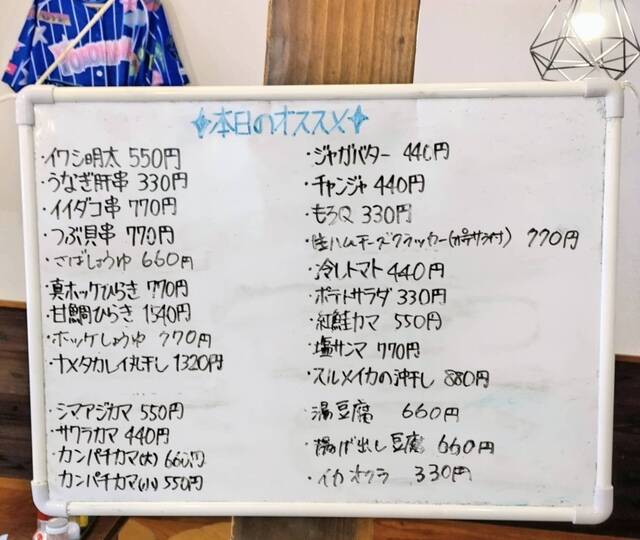 YOKOHAMA
本日のオススメ
・イワシ明太 550円
・うなぎ肝串 330円
・イイダコ串 770円
・つぶ貝串 770円
・さばしょうゆ 660円
・真ホッケひらき 770円
・甘鯛ひらき 1540円
・ホッケしょうゆ 770円
・ナメタカレイ丸干し 1320円
・シマアジカマ 550円
・サワラカマ 440円
・カンパチカマ(大) 660円
・カンパチカマ(小) 550円
・ジャガバター 440円
・チャンジャ 440円
・もろQ 330円
・生ハムチーズクラッカー 770円
・冷しトマト 440円
・ポテトサラダ 330円
・紅鮭カマ 550円
・塩サンマ 770円
・スルメイカの沖干し 880円
・湯豆腐 660円
・揚げ出し豆腐 660円
・イカオクラ 330円